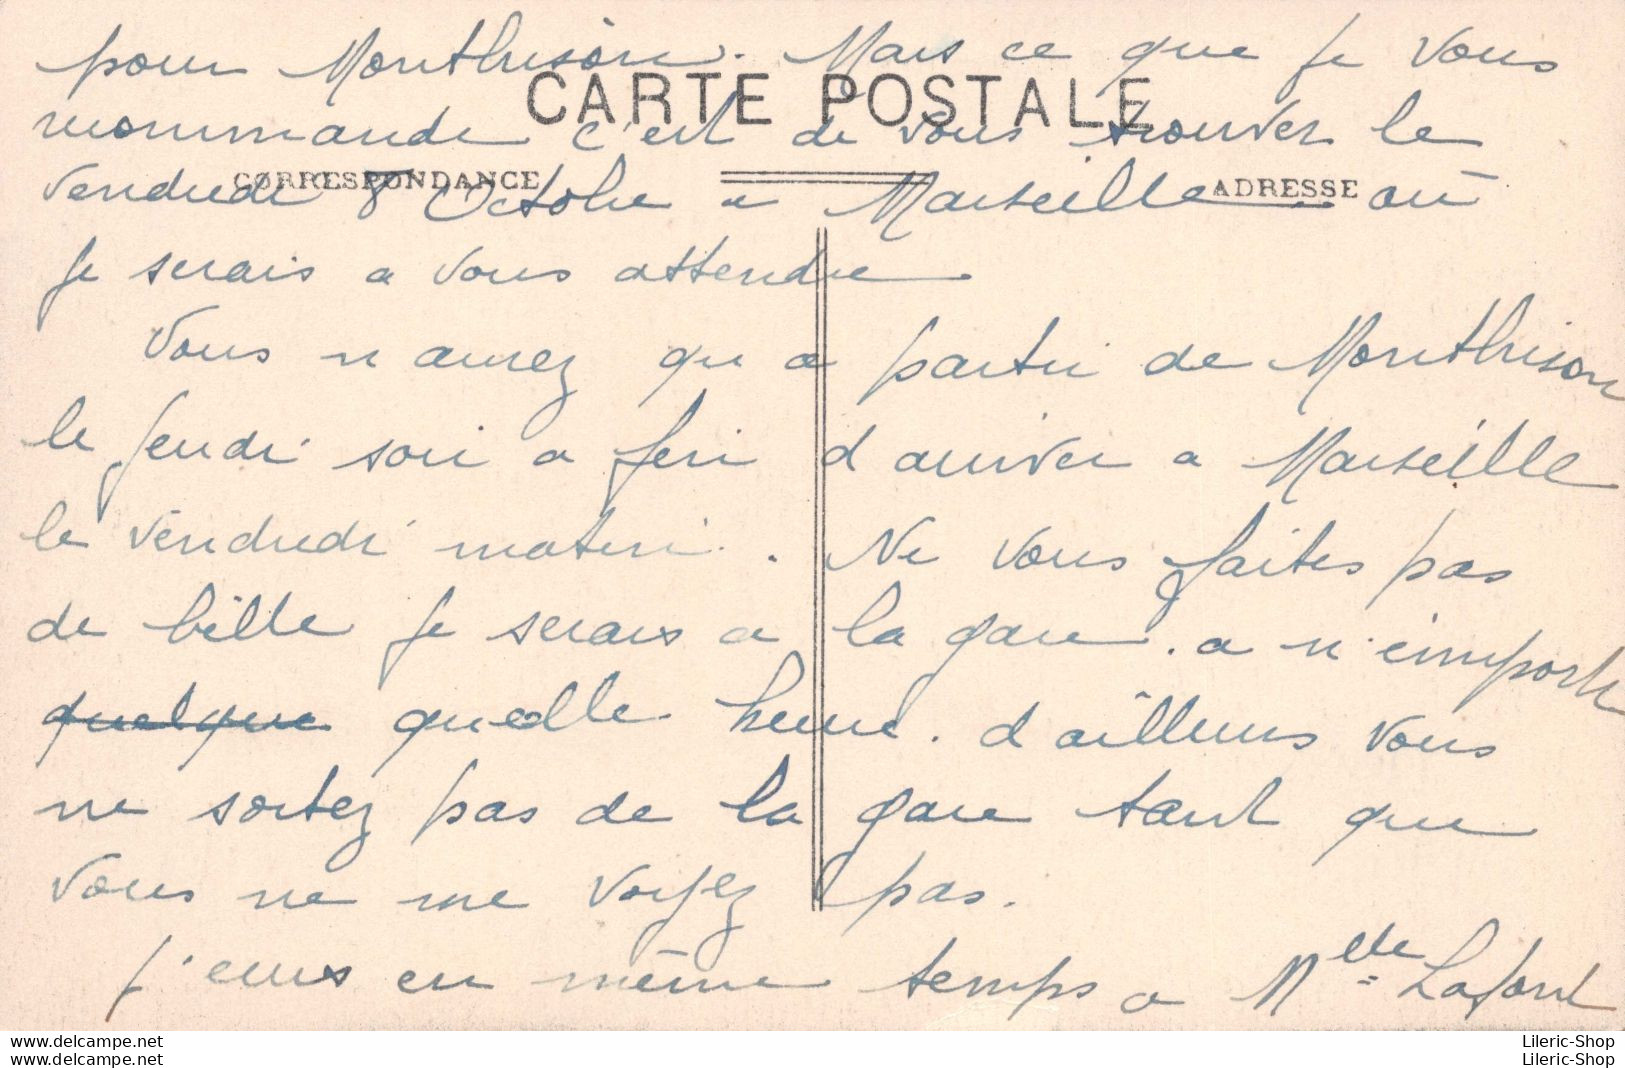 pour Montbrison. Mais ce que je vous
CARTE POSTALE
recommande c'est de vous trouver le
CORRESPONDANCE
ADRESSE
vendredi 8 Octobre a Marseille où
je serais a vous attendre
Vous n aurez qu a partir de Montbrison
le jeudi soir a fin d arriver a Marseille
le vendredi matin. Ne vous faites pas
de bille je serais a la gare. a n'importe
quelque quelle heure. d ailleurs vous
ne sortez pas de la gare tant que
vous ne me voyez pas.
j'ecris en même temps a Melle Lafont
Lileric-Shop
Lileric-Shop
Lileric-Shop
Lileric-Shop